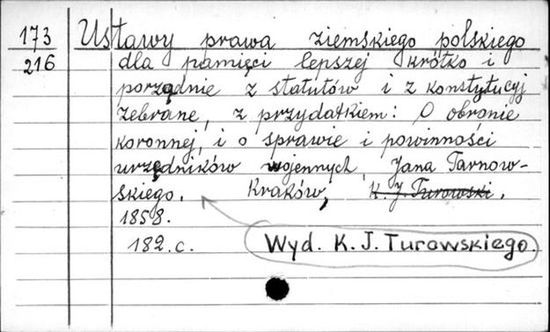 173 Ustawy prawa ziemskiego polskiego
216 dla pamięci lepszej krótko i
porządnie z statutów i z konstytucyj
zebrane, z przydatkiem: O obronie
koronnej, i o sprawie i powinności
urzędników wojennych, Jana Tarnow-
skiego. Kraków, K. J. Turowski.
1858.
182.c. Wyd. K. J. Turowskiego.